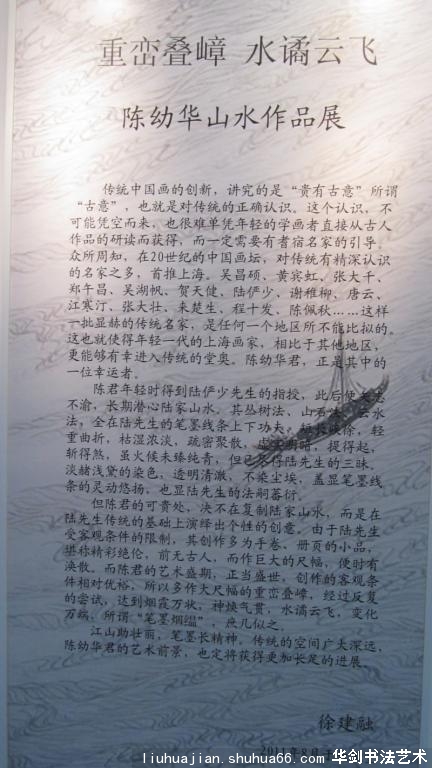 重峦叠嶂 水谲云飞
陈幼华山水作品展
传统中国画的创新，讲究的是“贵有古意”所谓
“古意”，也就是对传统的正确认识。这个认识，不
可能凭空而来，也很难单凭年轻的学画者直接从古人
作品的研读而获得，而一定需要有耆宿名家的引导。
众所周知，在20世纪的中国画坛，对传统有精深认识
的名家之多，首推上海。吴昌硕、黄宾虹、张大千、
郑午昌、吴湖帆、贺天健、陆俨少、谢稚柳、唐云、
江寒汀、张大壮、来楚生、程十发、陈佩秋……这样
一批显赫的传统名家，是任何一个地区所不能比拟的。
这也就使得年轻一代的上海画家，相比于其他地区，
更能够有幸进入传统的堂奥。陈幼华君，正是其中的
一位幸运者。
陈君年轻时得到陆俨少先生的指授，此后便矢志
不渝，长期潜心陆家山水。其丛树法、山石法、云水
法，全在陆先生的笔墨线条上下功夫，短长肥瘦，轻
重曲折，枯湿浓淡，疏密聚散，虚实明暗，提得起，
斩得煞，虽火候未臻纯青，但已尽得陆先生的三昧。
淡赭浅黛的染色，透明清澈，不染尘埃，盖显笔墨线
条的灵动悠扬，也显陆先生的法嗣蕃衍。
但陈君的可贵处，决不在复制陆家山水，而是在
陆先生传统的基础上演绎出个性的创意。由于陆先生
受客观条件的限制，其创作多为手卷、册页的小品，
堪称精彩绝伦，前无古人，而作巨大的尺幅，便时有
涣散。而陈君的艺术盛期，正当盛世，创作的客观条
件相对优裕，所以多作大尺幅的重峦叠嶂，经过反复
的尝试，达到烟霞万状，神焕气贯，水谲云飞，变化
万端，所谓“笔墨烟缊”，庶几似之。
江山助壮丽，笔墨长精神。传统的空间广大深远，
陈幼华君的艺术前景，也定将获得更加长足的进展。
徐建融
2011年8月
liuhuajian.shuhua66.com 华剑书法艺术